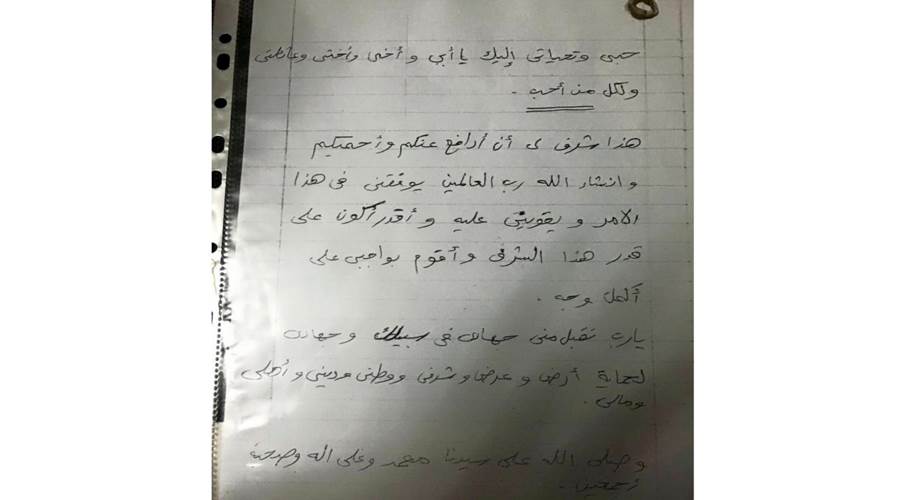 حبى وتحياتى إليك يا أبي و أخى وأختى وعائلتى
ولكل من أحب .
هذا شرف لى أن أدافع عنكم وأحميكم
وانشاء الله رب العالمين يوفقنى فى هذا
الامر و يقوينى عليه و أقدر أكون على
قدر هذا الشرف و أقوم بواجبى على
أكمل وجه .
يارب تقبل منى جهادى فى سبيلك وجهادى
لحماية أرضى و عرضى وشرفى ووطنى ودينى و أهلى
ومالى .
وصلى الله على سيدنا محمد وعلى اله وصحبه
أجمعين .